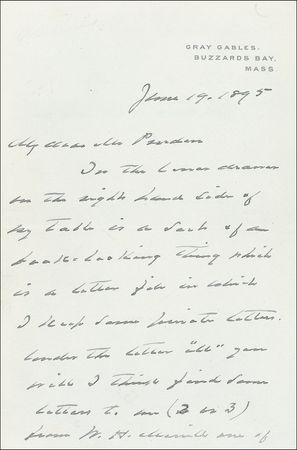 GRAY GABLES.
BUZZARDS BAY,
MASS.
June 19. 1895
My dear Mr
In the lower drawer
on the right hand side of
my table is a sort of a
book-looking thing which
is a letter file in which
I keep some private letters.
Under the letter "M" you
will I think find some
letters to me (2 or 3)
from W. H. one of